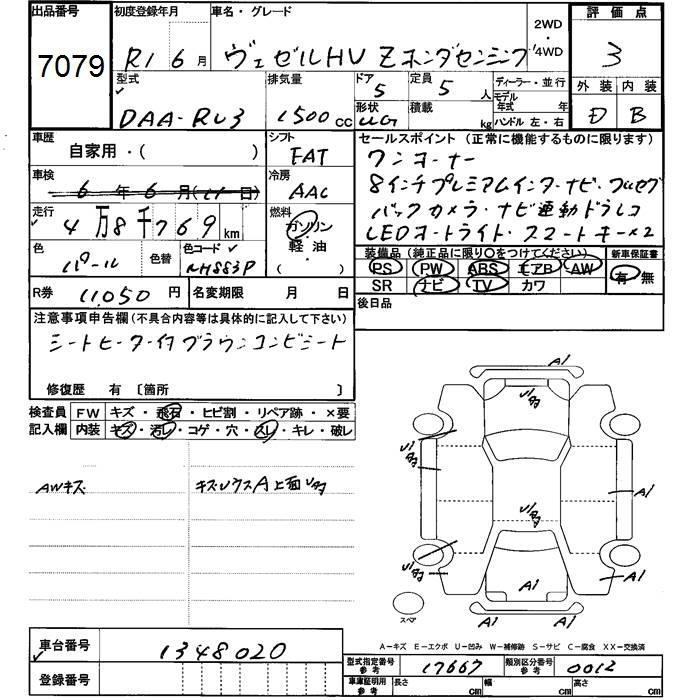 出品番号 初度登録年月 車名・グレード 2WD 4WD 評価点
7079 R1 6月 ヴェゼルHV Zホンダセンシング 3
型式 排気量 ドア 5 定員 5人 ディーラー・並行 外装 内装
DAA-RU3 1500cc 形状 UG 積載 kg モデル年式 年 D B
ハンドル 左・右
車歴 自家用・( ) シフト FAT セールスポイント(正常に機能するものに限ります)
ワンオーナー
車検 6年6月(11日) 冷房 AAC 8インチプレミアムインターナビ・フルセグ
走行 4万8千769km 燃料 ガソリン・軽・油・( ) バックカメラ・ナビ連動ドラレコ
LEDオートライト・スマートキー×2
色 パール 色替 色コード NH883P 装備品(純正品に限り○をつけてください) 新車保証書
PS PW ABS エアB AW 有・無
SR ナビ TV カワ
R券 11,050円 名変期限 月 日 後日品
注意事項申告欄(不具合内容等は具体的に記入して下さい)
シートヒーター付ブラウンコンビシート
修復歴 有 〔箇所 〕
検査員 FW キズ・飛石・ヒビ割・リペア跡・×要
記入欄 内装 キズ・汚レ・コゲ・穴・スレ・キレ・破レ
AWキズ
A1
A1
A1
A1
A1
A1
A1
スペア
A-キズ E-エクボ U-凹み W-補修跡 S-サビ C-腐食 XX-交換済
車台番号 1348020
登録番号
型式指定番号 参考 17667 類別区分番号 参考 0012
車庫証明用 参考 長さ cm 幅 cm 高さ cm